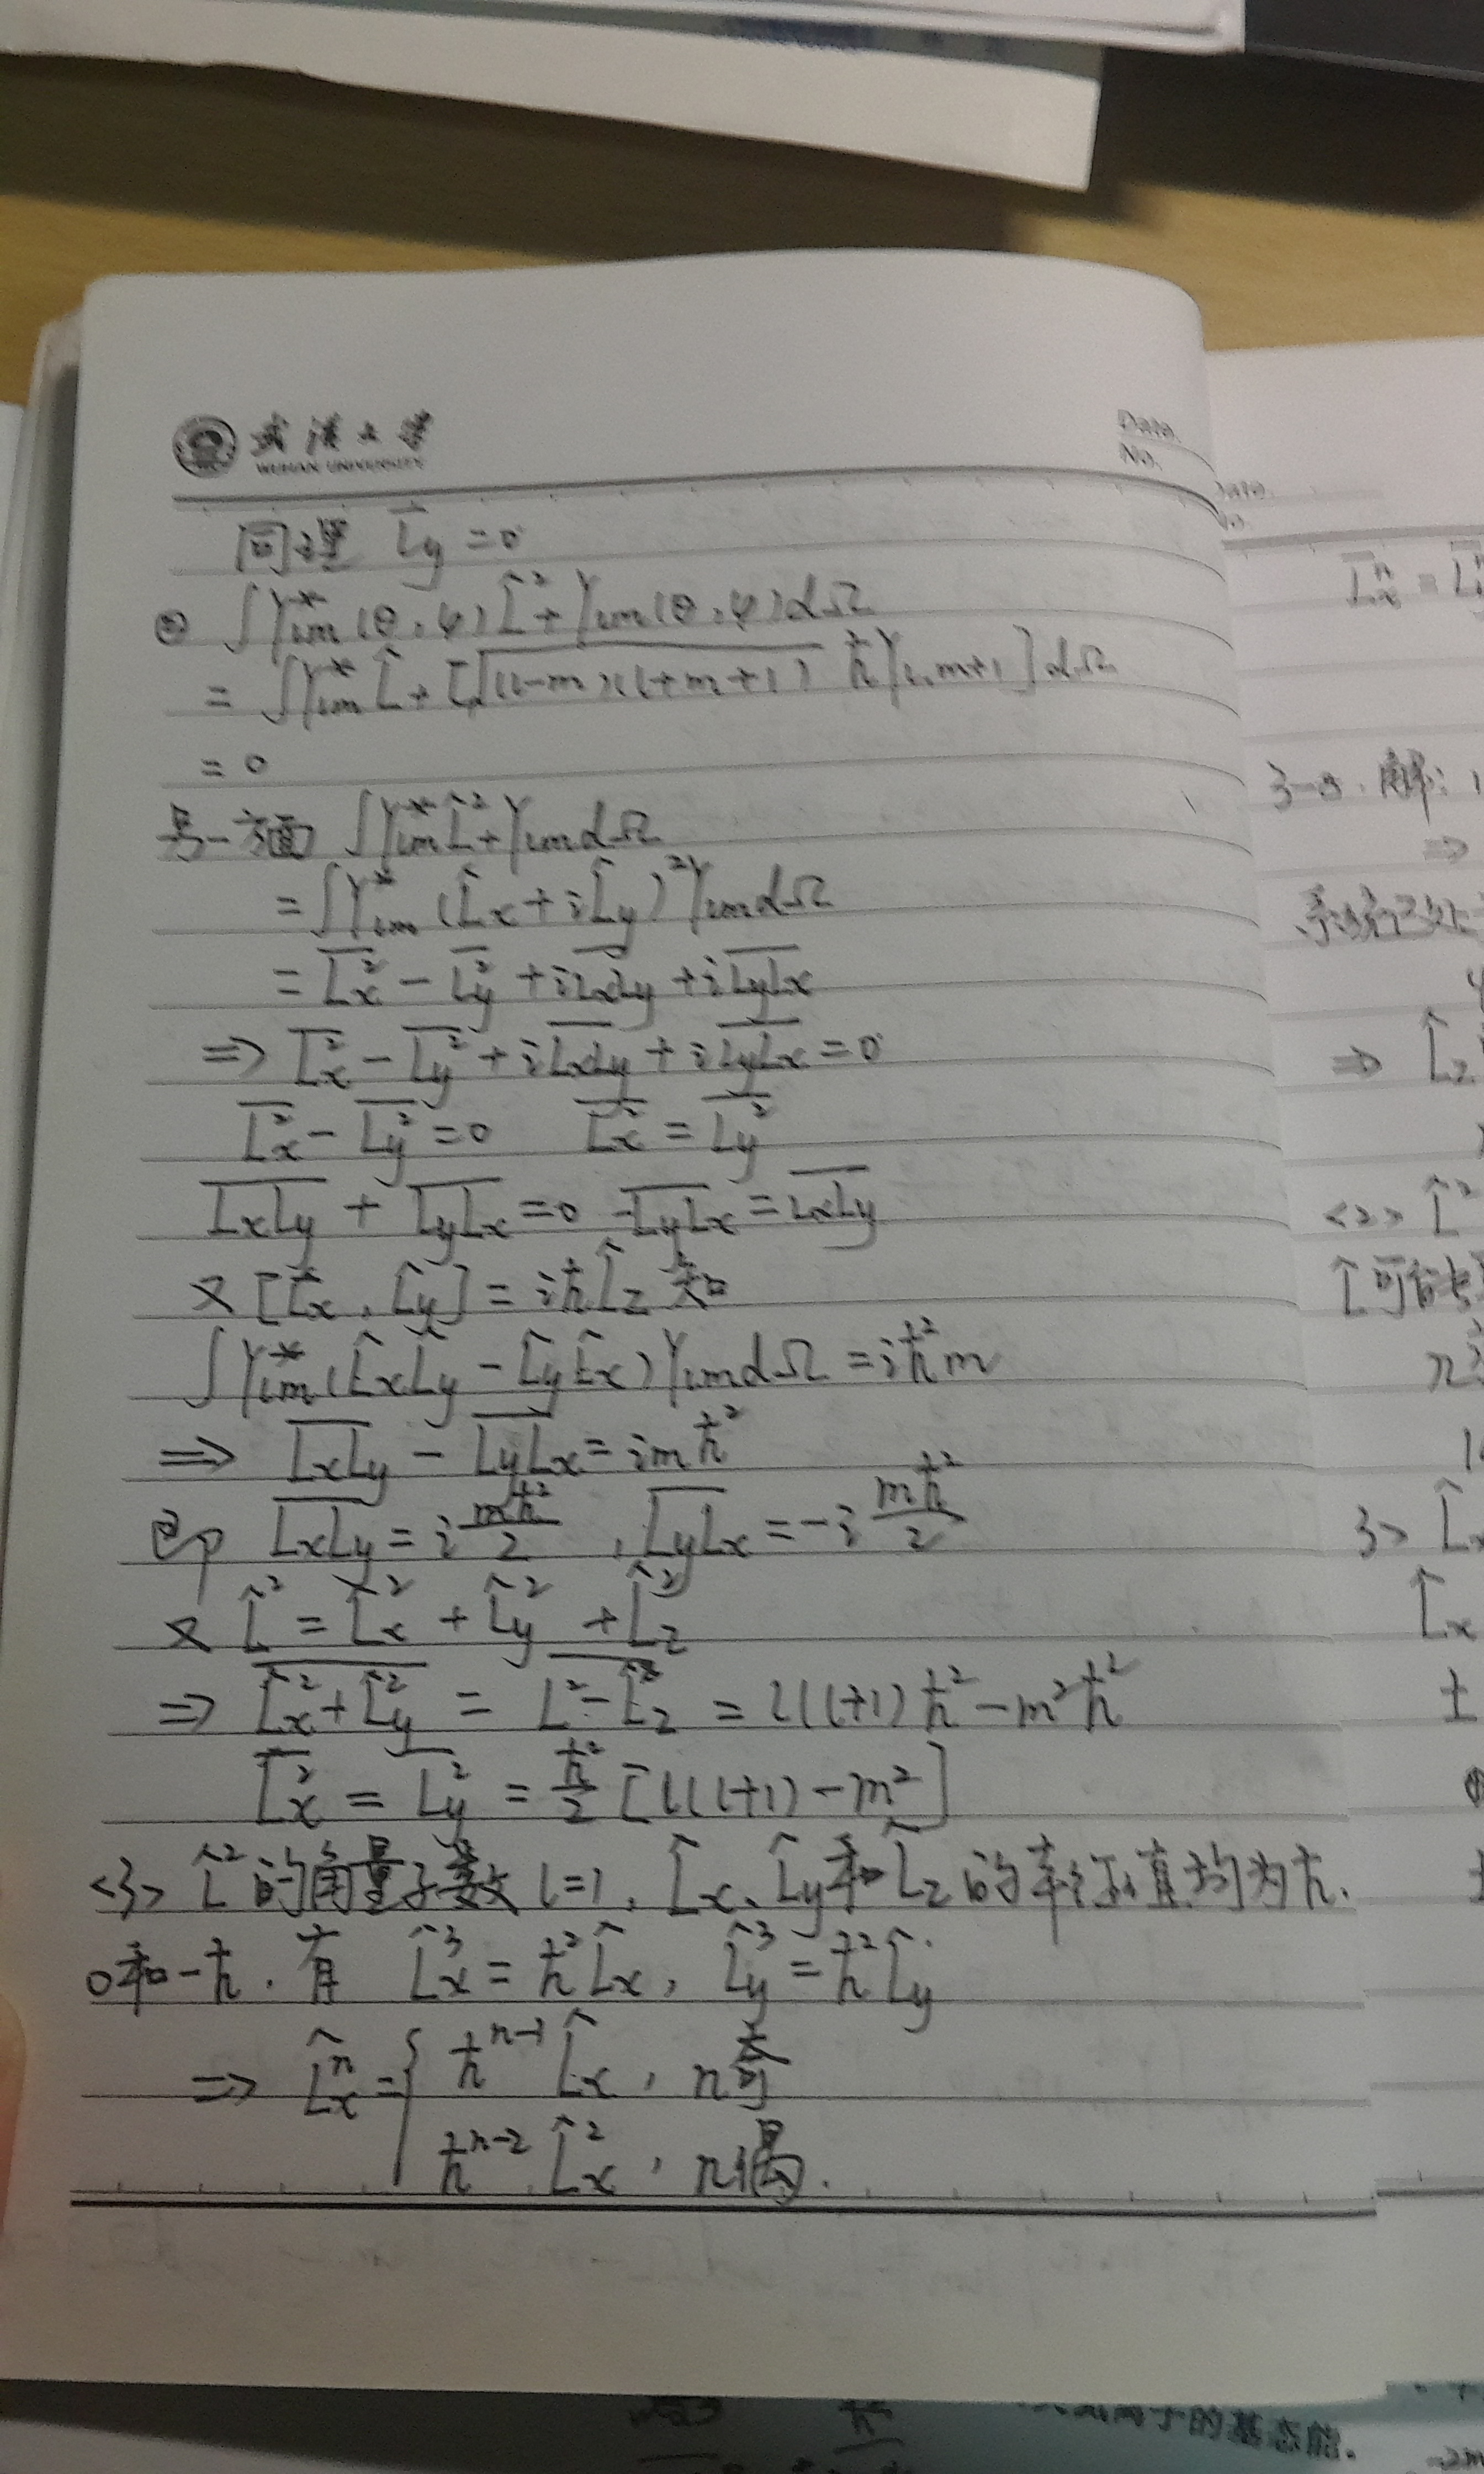 武汉大学
WUHAN UNIVERSITY
Date.
No.
同理 L̄y = 0
② ∫Y*lm(θ,φ) L̂₊² Ylm(θ,φ)dΩ
= ∫Y*lm L̂₊ [√(l-m)(l+m+1) ħ Yl,m+1] dΩ
= 0
另一方面 ∫Y*lm L̂₊² Ylm dΩ
= ∫Y*lm (L̂x + iL̂y)² Ylm dΩ
= \overline{Lx²} - \overline{Ly²} + i\overline{LxLy} + i\overline{LyLx}
⇒ \overline{Lx²} - \overline{Ly²} + i\overline{LxLy} + i\overline{LyLx} = 0
\overline{Lx²} - \overline{Ly²} = 0 \overline{Lx²} = \overline{Ly²}
\overline{LxLy} + \overline{LyLx} = 0 -\overline{LyLx} = \overline{LxLy}
又 [L̂x, L̂y] = iħL̂z 知
∫Y*lm (L̂xL̂y - L̂yL̂x) Ylm dΩ = iħ²m
⇒ \overline{LxLy} - \overline{LyLx} = imħ²
即 \overline{LxLy} = i mħ²/2 , \overline{LyLx} = -i mħ²/2
又 L̂² = L̂x² + L̂y² + L̂z²
⇒ \overline{L̂x² + L̂y²} = \overline{L² - L̂z²} = l(l+1)ħ² - m²ħ²
\overline{Lx²} = \overline{Ly²} = ħ²/2 [l(l+1) - m²]
<3> L̂² 的角量子数 l=1, L̂x、L̂y和L̂z 的本征值均为ħ、
0和-ħ. 有 L̂x³ = ħ²L̂x, L̂y³ = ħ²L̂y
⇒ L̂xⁿ = { ħⁿ⁻¹ L̂x , n奇
ħⁿ⁻² L̂x² , n偶.
3-8. 解:
⇒
⇒ L̂z
<2> L̂²
3> L̂x
L̂x
±
的基态能.